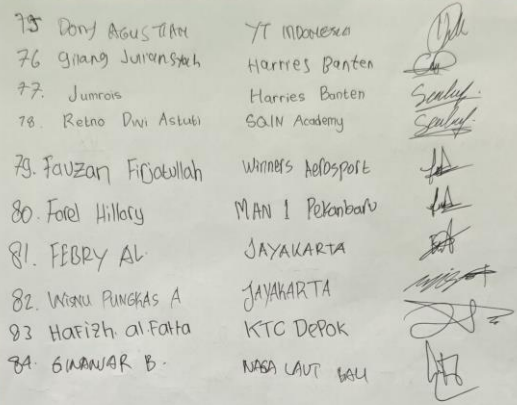 75 Dony AGUSTIAN YT INDONESIA
76 Gilang Juriansyah Harries Banten
77. Jumrois Harries Banten
78. Retno Dwi Astuti SQIN Academy
79. Fauzan Firjatullah Winners Aerosport
80. Forel Hillory MAN 1 Pekanbaru
81. FEBRY AL. JAYAKARTA
82. WISNU PUNGKAS A JAYAKARTA
83 Hafizh al.Fatta KTC DePOK
84. GINANJAR B. NAGA LAUT BALI